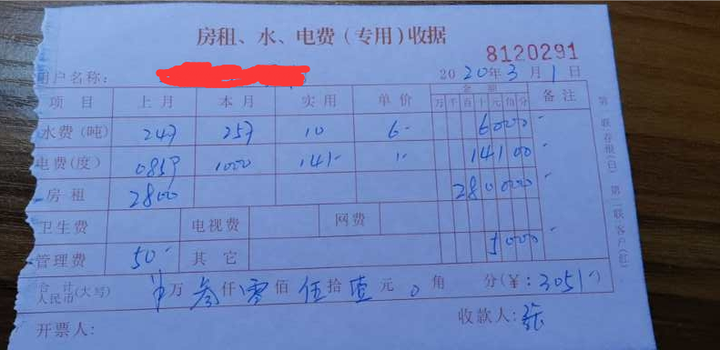 房租、水、电费(专用)收据
8120291
用户名称: 2020年3月1日
项目 上月 本月 实用 单价 金额 备注
万千百十元角分
水费(吨) 247 257 10 6- 6000
电费(度) 0859 1000 141- 1- 14100
房租 2800 280000
卫生费 电视费 网费
管理费 50- 其它 5000
合计人民币(大写) 万叁仟零佰伍拾壹元0角 分(¥:3051-)
开票人: 收款人:张
第一联存根(白) 第二联客户(红)